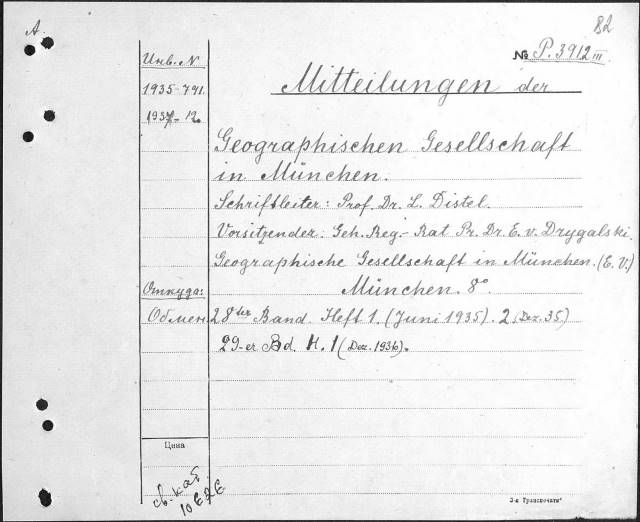 A.
82
№ P. 3912 III.
Инв. N
Mitteilungen der
1935-791.
1937-12.
Geographischen Gesellschaft
in München.
Schriftleiter: Prof. Dr. L. Distel.
Vorsitzender: Geh. Reg.- Rat. Pr. Dr. E. v. Drygalski.
Geographische Gesellschaft in München. (E. V.)
Откуда: München. 8°
Обмен. 28ter Band. Heft 1. (Juni 1935). 2 (Dez. 35)
29-er Bd. H. 1 (Dez. 1936).
Цена
св. кат
3-я Транспечать